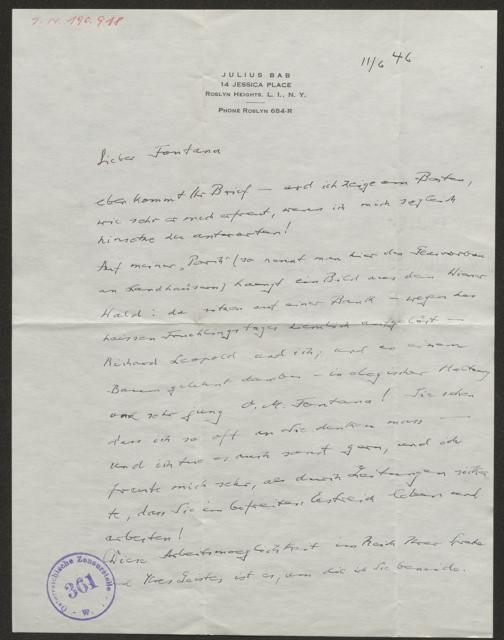 I. N. 190.918
11/6 46
JULIUS BAB
14 JESSICA PLACE
ROSLYN HEIGHTS, L. I., N. Y.
PHONE ROSLYN 684-R
Lieber Fontana
eben kommt Ihr Brief — und ich zeige am Besten,
wie sehr er mich erfreut, wenn ich mich sogleich
hinsetze zu antworten!
Auf meiner „Porch" (so nennt man hier den
an Landhäusern) haengt ein Bild aus dem Wiener
Wald: da sitzen auf einer Bank — wegen des
heissen Fruehlingstages — 
Richard Leopold und ich; und an einem
Baum gelehnt daneben — in elegischer Haltung
und sehr jung O. M. Fontana! Sie sehen
dass ich so oft an Sie denken muss —
und ich tue es auch sonst gern, und ich
freute mich sehr, als durch Zeitungen
te, dass Sie im befreiten Oesterreich leben und
arbeiten!
Diese Arbeitsmoeglichkeit im Reich Ihrer Sprache
und Ihres Geistes ist es, um die ich Sie beneide.
Österreichische Zensurstelle
361
W.